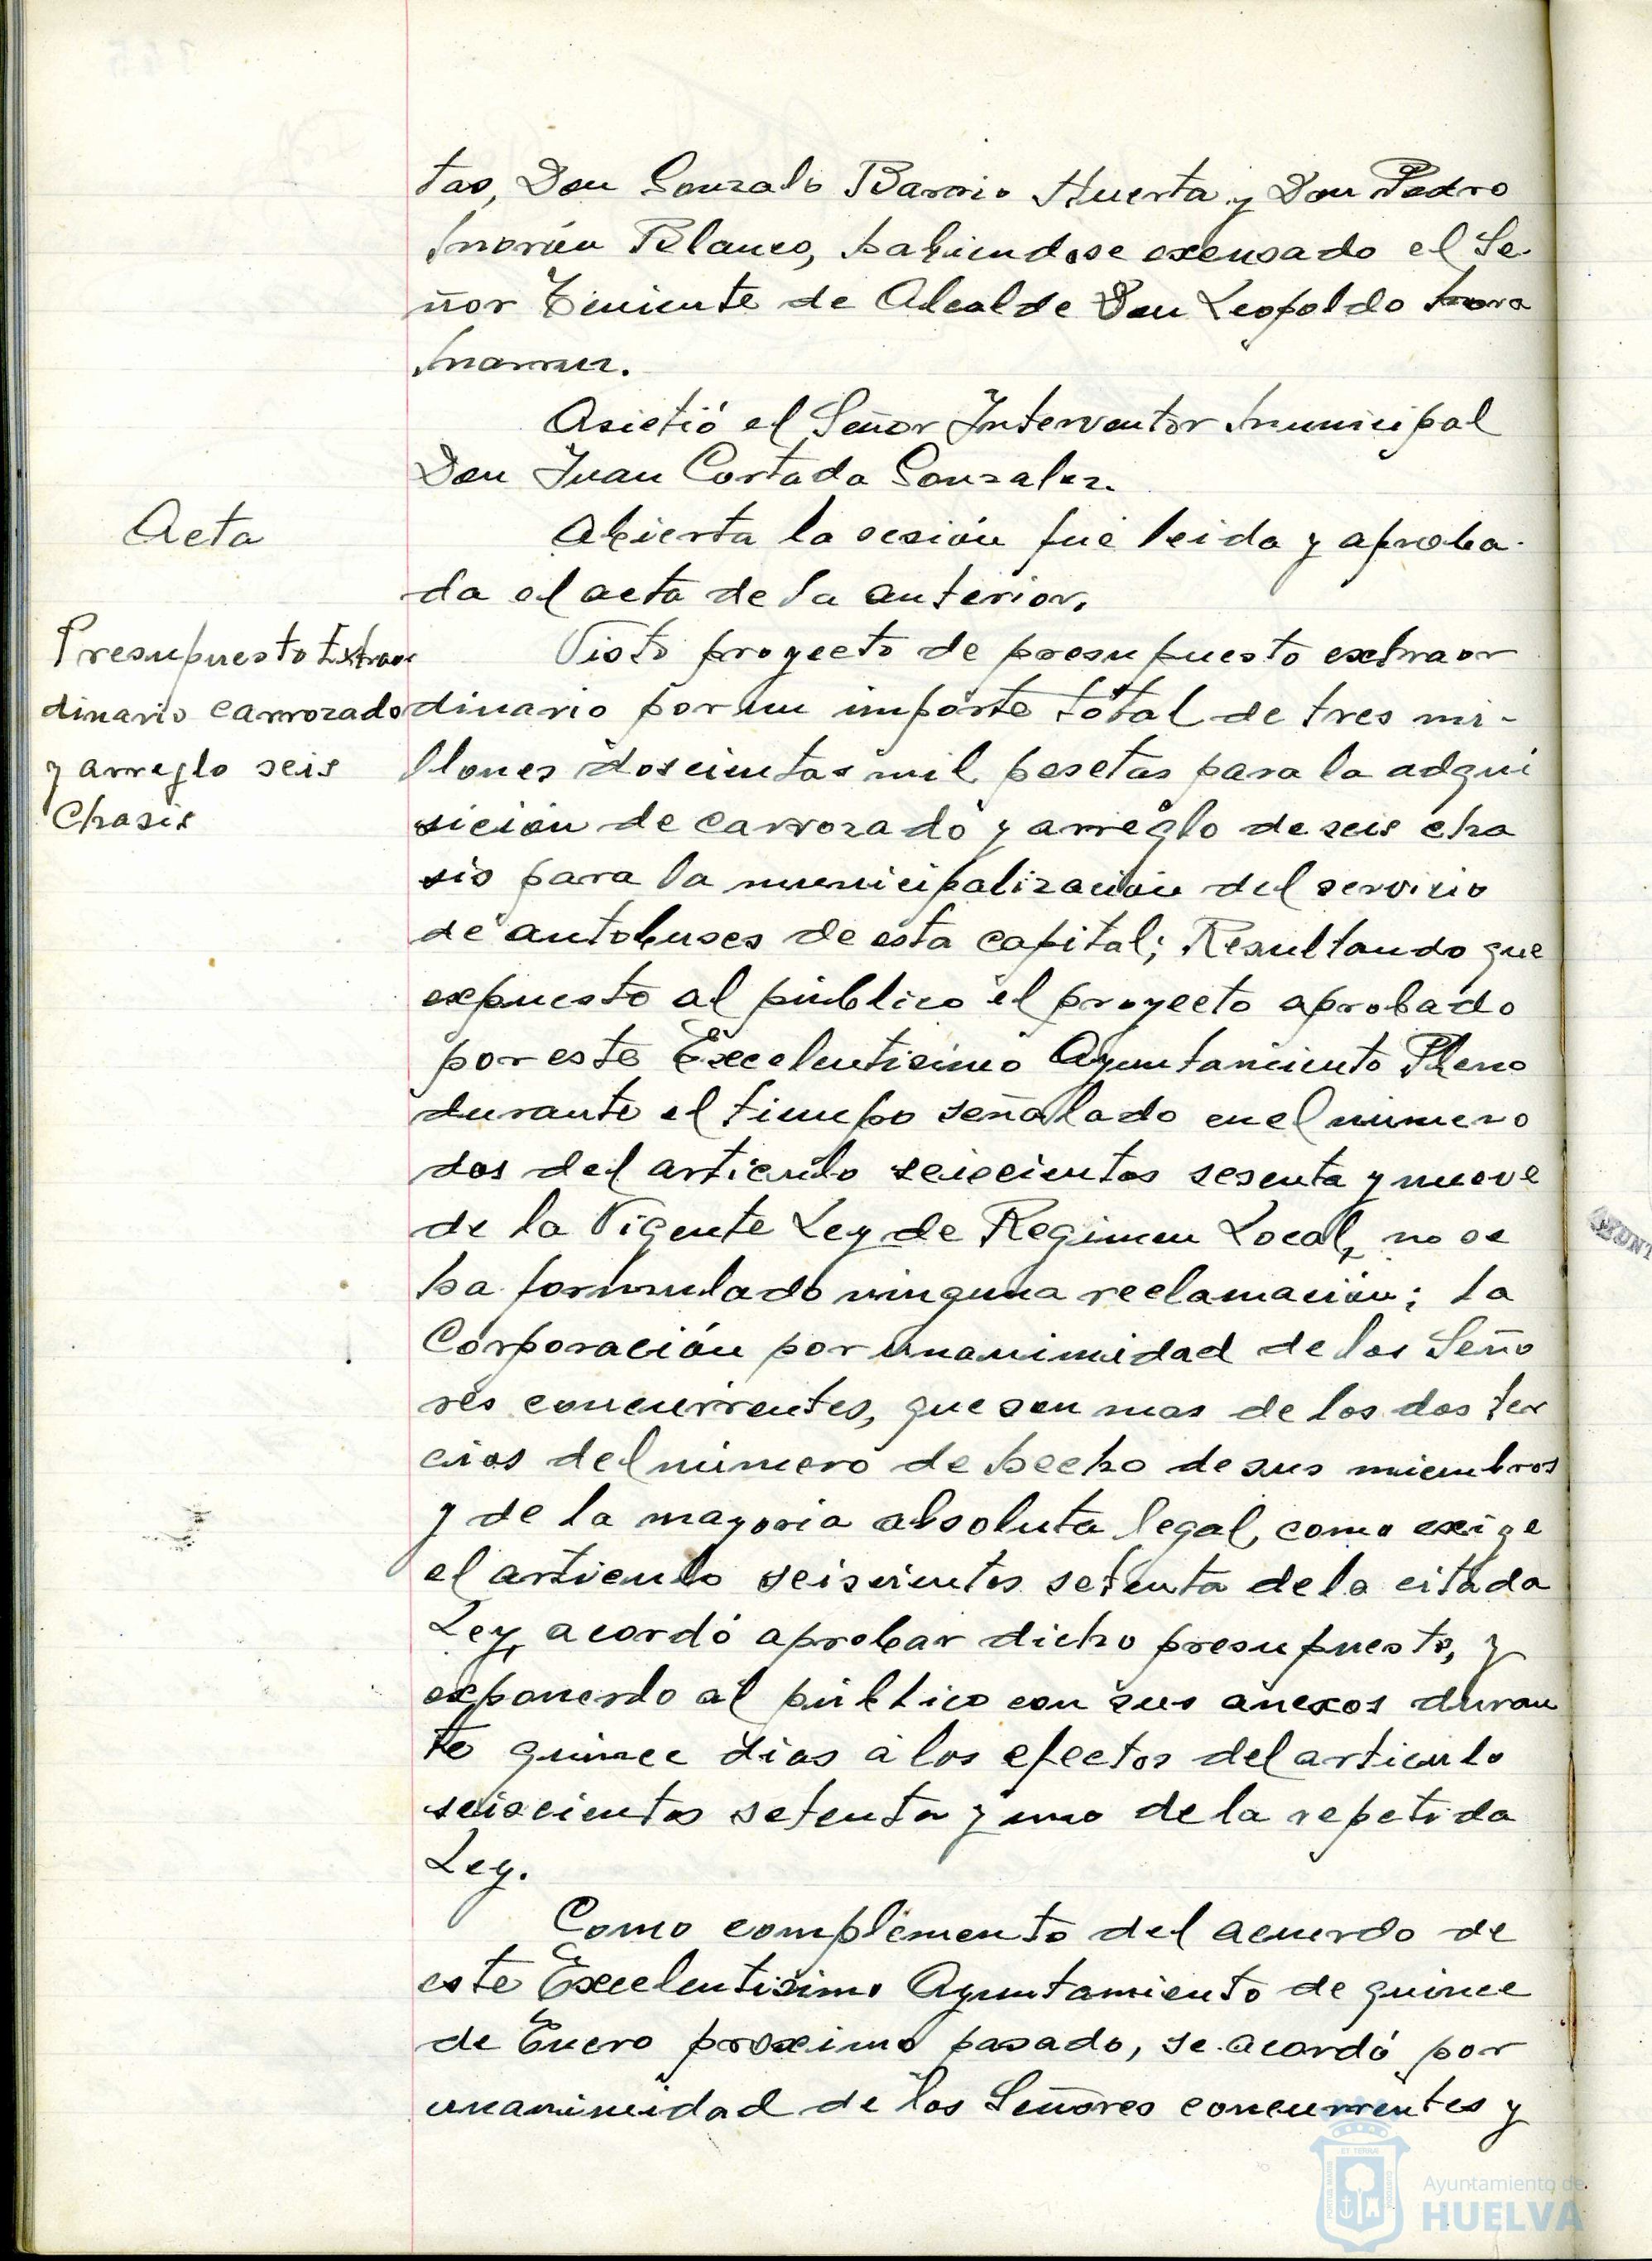 tas, Don Gonzalo Barrio Huerta y Don Pedro
Morián Blanco, habiendose excusado el Se-
ñor Teniente de Alcalde Don Leopoldo Mora
Asistió el Señor Interventor Municipal
Don Juan Cortada Gonzalez.
Acta
Abierta la sesión fué leida y aproba-
da el acta de la anterior.
Presupuesto Extraor
dinario carrozado
y arreglo seis
Chasis
Visto proyecto de presupuesto extraor
dinario por un importe total de tres mi-
llones doscientas mil pesetas para la adqui
sición de carrozado y arreglo de seis cha
sis para la municipalización del servicio
de autobuses de esta capital; Resultando que
expuesto al público el proyecto aprobado
por este Excelentisimo Ayuntamiento Pleno
durante el tiempo señalado en el número
dos del articulo seiscientos sesenta y nueve
de la Vigente Ley de Regimen Local, no se
ha formulado ninguna reclamación; la
Corporación por unanimidad de los Seño
res concurrentes, que son mas de los dos ter
cios del número de hecho de sus miembros
y de la mayoria absoluta legal, como exige
el articulo seiscientos setenta de la citada
Ley, acordó aprobar dicho presupuesto, y
exponerlo al público con sus anexos duran
te quince dias a los efectos del articulo
seiscientos setenta y uno de la repetida
Ley.
Como complemento del acuerdo de
este Excelentisimo Ayuntamiento de quince
de Enero proximo pasado, se acordó por
unanimidad de los Señores concurrentes y
Ayuntamiento de
HUELVA